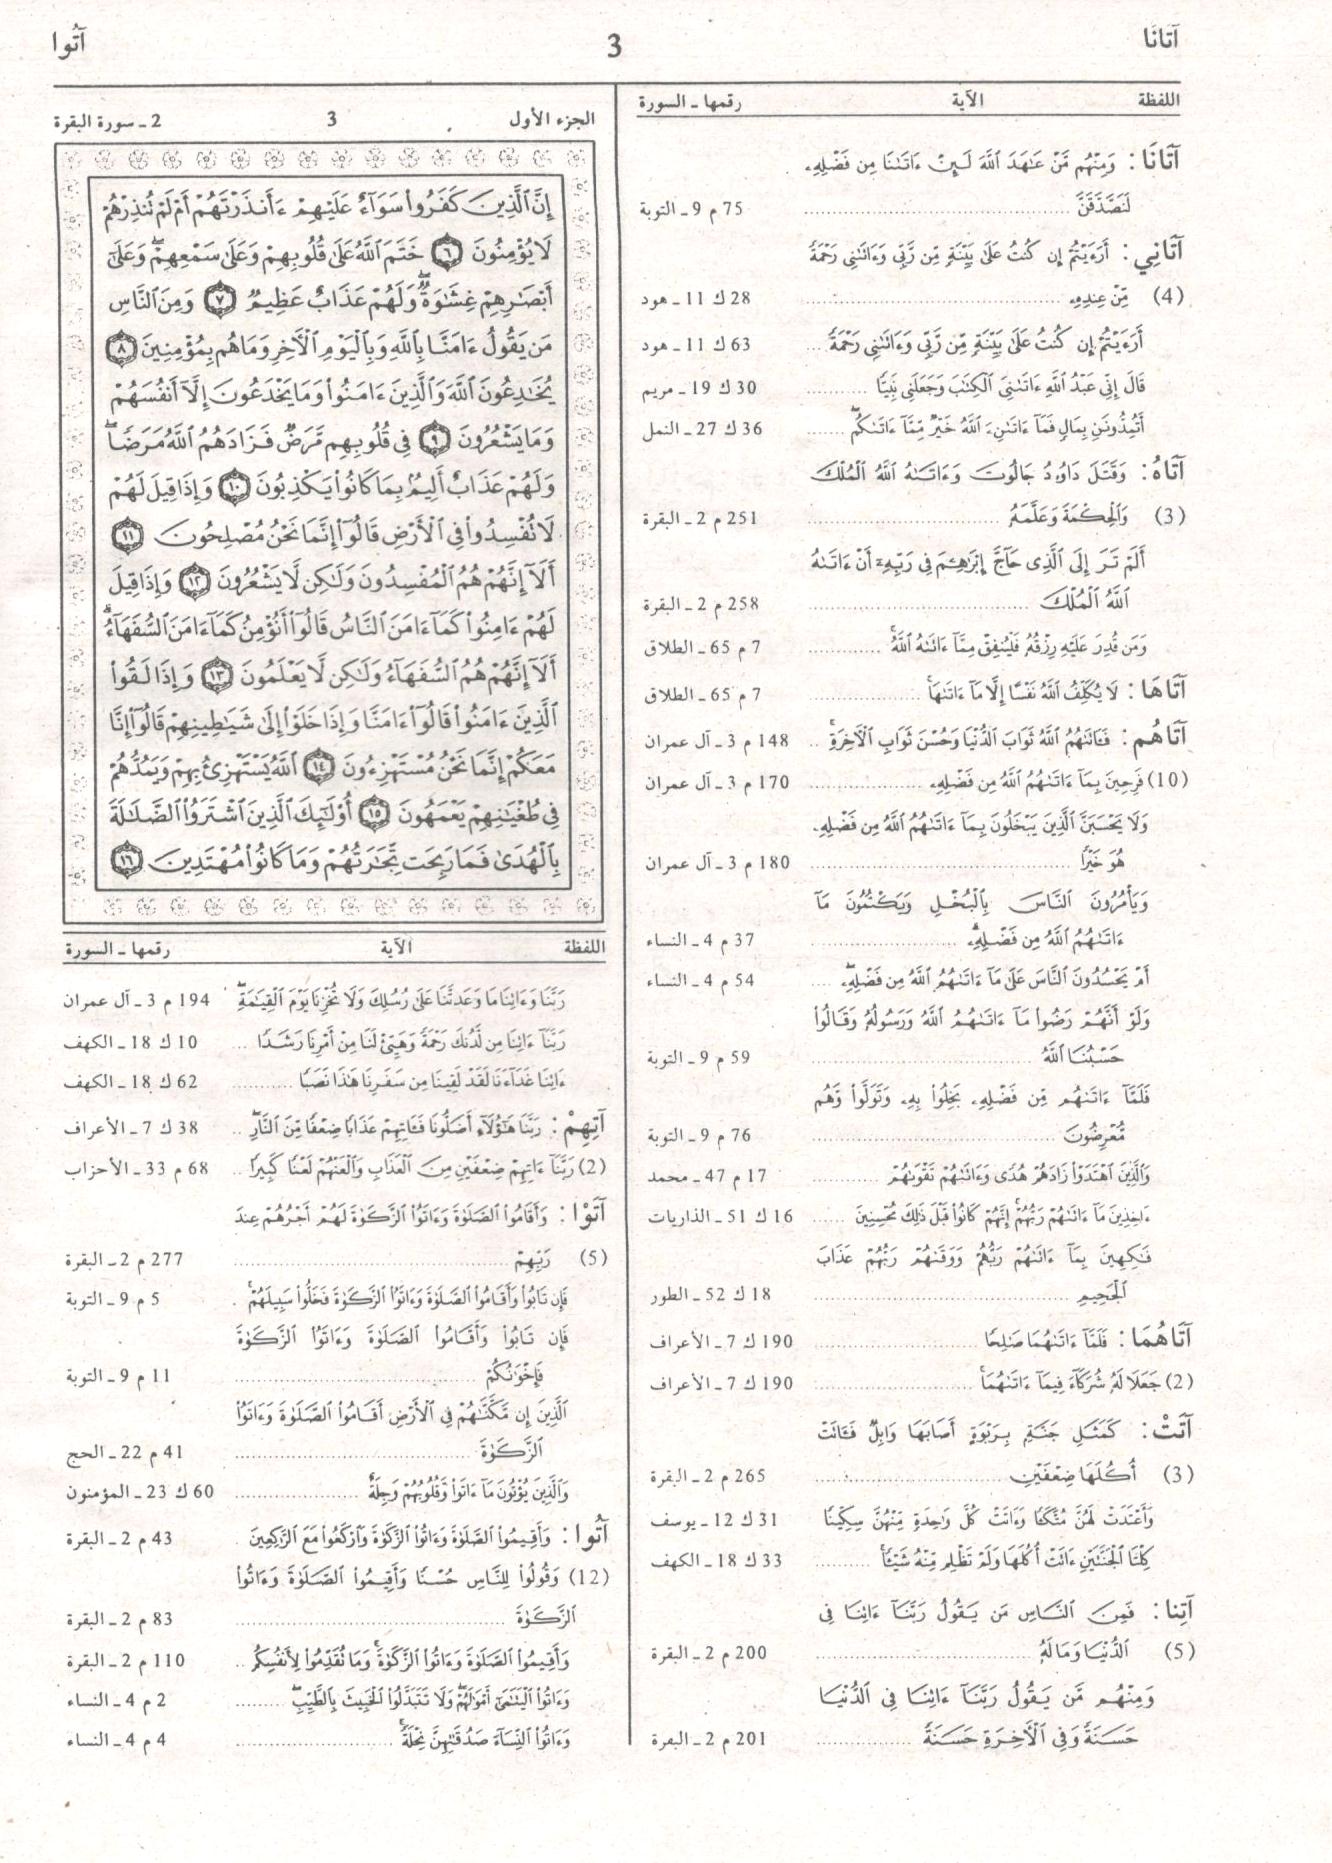 آتَانَا
3
آتُوا
اللفظة الآية رقمها ـ السورة
آتَانَا : وَمِنْهُم مَّنْ عَٰهَدَ ٱللَّهَ لَئِنْ ءَاتَىٰنَا مِن فَضْلِهِۦ
لَنَصَّدَّقَنَّ .......... 75 م 9 ـ التوبة
آتَانِي : أَرَءَيْتُمْ إِن كُنتُ عَلَىٰ بَيِّنَةٍ مِّن رَّبِّي وَءَاتَىٰنِي رَحْمَةً
(4) مِّنْ عِندِهِۦ .......... 28 ك 11 ـ هود
أَرَءَيْتُمْ إِن كُنتُ عَلَىٰ بَيِّنَةٍ مِّن رَّبِّي وَءَاتَىٰنِي رَحْمَةً ... 63 ك 11 ـ هود
قَالَ إِنِّي عَبْدُ ٱللَّهِ ءَاتَىٰنِيَ ٱلْكِتَٰبَ وَجَعَلَنِي نَبِيًّا .......... 30 ك 19 ـ مريم
أَتُمِدُّونَنِ بِمَالٍ فَمَآ ءَاتَىٰنِۦَ ٱللَّهُ خَيْرٌ مِّمَّآ ءَاتَىٰكُم ...... 36 ك 27 ـ النمل
آتَاهُ : وَقَتَلَ دَاوُۥدُ جَالُوتَ وَءَاتَىٰهُ ٱللَّهُ ٱلْمُلْكَ
(3) وَٱلْحِكْمَةَ وَعَلَّمَهُۥ .......... 251 م 2 ـ البقرة
أَلَمْ تَرَ إِلَى ٱلَّذِي حَآجَّ إِبْرَٰهِـۧمَ فِي رَبِّهِۦٓ أَنْ ءَاتَىٰهُ
ٱللَّهُ ٱلْمُلْكَ .......... 258 م 2 ـ البقرة
وَمَن قُدِرَ عَلَيْهِ رِزْقُهُۥ فَلْيُنفِقْ مِمَّآ ءَاتَىٰهُ ٱللَّهُ .......... 7 م 65 ـ الطلاق
آتَاهَا : لَا يُكَلِّفُ ٱللَّهُ نَفْسًا إِلَّا مَآ ءَاتَىٰهَا .......... 7 م 65 ـ الطلاق
آتَاهُم : فَـَٔاتَىٰهُمُ ٱللَّهُ ثَوَابَ ٱلدُّنْيَا وَحُسْنَ ثَوَابِ ٱلْـَٔاخِرَةِ .. 148 م 3 ـ آل عمران
(10) فَرِحِينَ بِمَآ ءَاتَىٰهُمُ ٱللَّهُ مِن فَضْلِهِۦ .......... 170 م 3 ـ آل عمران
وَلَا يَحْسَبَنَّ ٱلَّذِينَ يَبْخَلُونَ بِمَآ ءَاتَىٰهُمُ ٱللَّهُ مِن فَضْلِهِۦ
هُوَ خَيْرًا .......... 180 م 3 ـ آل عمران
وَيَأْمُرُونَ ٱلنَّاسَ بِٱلْبُخْلِ وَيَكْتُمُونَ مَآ
ءَاتَىٰهُمُ ٱللَّهُ مِن فَضْلِهِۦ .......... 37 م 4 ـ النساء
أَمْ يَحْسُدُونَ ٱلنَّاسَ عَلَىٰ مَآ ءَاتَىٰهُمُ ٱللَّهُ مِن فَضْلِهِۦ .... 54 م 4 ـ النساء
وَلَوْ أَنَّهُمْ رَضُوا۟ مَآ ءَاتَىٰهُمُ ٱللَّهُ وَرَسُولُهُۥ وَقَالُوا۟
حَسْبُنَا ٱللَّهُ .......... 59 م 9 ـ التوبة
فَلَمَّآ ءَاتَىٰهُم مِّن فَضْلِهِۦ بَخِلُوا۟ بِهِۦ وَتَوَلَّوا۟ وَّهُم
مُّعْرِضُونَ .......... 76 م 9 ـ التوبة
وَٱلَّذِينَ ٱهْتَدَوْا۟ زَادَهُمْ هُدًى وَءَاتَىٰهُمْ تَقْوَىٰهُمْ .......... 17 م 47 ـ محمد
ءَاخِذِينَ مَآ ءَاتَىٰهُمْ رَبُّهُمْ إِنَّهُمْ كَانُوا۟ قَبْلَ ذَٰلِكَ مُحْسِنِينَ ...... 16 ك 51 ـ الذاريات
فَٰكِهِينَ بِمَآ ءَاتَىٰهُمْ رَبُّهُمْ وَوَقَىٰهُمْ رَبُّهُمْ عَذَابَ
ٱلْجَحِيمِ .......... 18 ك 52 ـ الطور
آتَاهُمَا : فَلَمَّآ ءَاتَىٰهُمَا صَٰلِحًا .......... 190 ك 7 ـ الأعراف
(2) جَعَلَا لَهُۥ شُرَكَآءَ فِيمَآ ءَاتَىٰهُمَا .......... 190 ك 7 ـ الأعراف
آتَتْ : كَمَثَلِ جَنَّةٍ بِرَبْوَةٍ أَصَابَهَا وَابِلٌ فَـَٔاتَتْ
(3) أُكُلَهَا ضِعْفَيْنِ .......... 265 م 2 ـ البقرة
وَأَعْتَدَتْ لَهُنَّ مُتَّكَـًٔا وَءَاتَتْ كُلَّ وَٰحِدَةٍ مِّنْهُنَّ سِكِّينًا 31 ك 12 ـ يوسف
كِلْتَا ٱلْجَنَّتَيْنِ ءَاتَتْ أُكُلَهَا وَلَمْ تَظْلِم مِّنْهُ شَيْـًٔا .......... 33 ك 18 ـ الكهف
آتِنا : فَمِنَ ٱلنَّاسِ مَن يَقُولُ رَبَّنَآ ءَاتِنَا فِي
(5) ٱلدُّنْيَا وَمَا لَهُۥ .......... 200 م 2 ـ البقرة
وَمِنْهُم مَّن يَقُولُ رَبَّنَآ ءَاتِنَا فِي ٱلدُّنْيَا
حَسَنَةً وَفِي ٱلْـَٔاخِرَةِ حَسَنَةً .......... 201 م 2 ـ البقرة
الجزء الأول 3 2 ـ سورة البقرة
إِنَّ ٱلَّذِينَ كَفَرُوا۟ سَوَآءٌ عَلَيْهِمْ ءَأَنذَرْتَهُمْ أَمْ لَمْ تُنذِرْهُمْ
لَا يُؤْمِنُونَ ٦ خَتَمَ ٱللَّهُ عَلَىٰ قُلُوبِهِمْ وَعَلَىٰ سَمْعِهِمْ وَعَلَىٰٓ
أَبْصَٰرِهِمْ غِشَٰوَةٌ وَلَهُمْ عَذَابٌ عَظِيمٌ ٧ وَمِنَ ٱلنَّاسِ
مَن يَقُولُ ءَامَنَّا بِٱللَّهِ وَبِٱلْيَوْمِ ٱلْـَٔاخِرِ وَمَا هُم بِمُؤْمِنِينَ ٨
يُخَٰدِعُونَ ٱللَّهَ وَٱلَّذِينَ ءَامَنُوا۟ وَمَا يَخْدَعُونَ إِلَّآ أَنفُسَهُمْ
وَمَا يَشْعُرُونَ ٩ فِي قُلُوبِهِم مَّرَضٌ فَزَادَهُمُ ٱللَّهُ مَرَضًا
وَلَهُمْ عَذَابٌ أَلِيمٌ بِمَا كَانُوا۟ يَكْذِبُونَ ١٠ وَإِذَا قِيلَ لَهُمْ
لَا تُفْسِدُوا۟ فِي ٱلْأَرْضِ قَالُوٓا۟ إِنَّمَا نَحْنُ مُصْلِحُونَ ١١
أَلَآ إِنَّهُمْ هُمُ ٱلْمُفْسِدُونَ وَلَٰكِن لَّا يَشْعُرُونَ ١٢ وَإِذَا قِيلَ
لَهُمْ ءَامِنُوا۟ كَمَآ ءَامَنَ ٱلنَّاسُ قَالُوٓا۟ أَنُؤْمِنُ كَمَآ ءَامَنَ ٱلسُّفَهَآءُ
أَلَآ إِنَّهُمْ هُمُ ٱلسُّفَهَآءُ وَلَٰكِن لَّا يَعْلَمُونَ ١٣ وَإِذَا لَقُوا۟
ٱلَّذِينَ ءَامَنُوا۟ قَالُوٓا۟ ءَامَنَّا وَإِذَا خَلَوْا۟ إِلَىٰ شَيَٰطِينِهِمْ قَالُوٓا۟ إِنَّا
مَعَكُمْ إِنَّمَا نَحْنُ مُسْتَهْزِءُونَ ١٤ ٱللَّهُ يَسْتَهْزِئُ بِهِمْ وَيَمُدُّهُمْ
فِي طُغْيَٰنِهِمْ يَعْمَهُونَ ١٥ أُو۟لَٰٓئِكَ ٱلَّذِينَ ٱشْتَرَوُا۟ ٱلضَّلَٰلَةَ
بِٱلْهُدَىٰ فَمَا رَبِحَت تِّجَٰرَتُهُمْ وَمَا كَانُوا۟ مُهْتَدِينَ ١٦
اللفظة الآية رقمها ـ السورة
رَبَّنَا وَءَاتِنَا مَا وَعَدتَّنَا عَلَىٰ رُسُلِكَ وَلَا تُخْزِنَا يَوْمَ ٱلْقِيَٰمَةِ 194 م 3 ـ آل عمران
رَبَّنَآ ءَاتِنَا مِن لَّدُنكَ رَحْمَةً وَهَيِّئْ لَنَا مِنْ أَمْرِنَا رَشَدًا ... 10 ك 18 ـ الكهف
ءَاتِنَا غَدَآءَنَا لَقَدْ لَقِينَا مِن سَفَرِنَا هَٰذَا نَصَبًا .......... 62 ك 18 ـ الكهف
آتِهِمْ : رَبَّنَا هَٰٓؤُلَآءِ أَضَلُّونَا فَـَٔاتِهِمْ عَذَابًا ضِعْفًا مِّنَ ٱلنَّارِ .. 38 ك 7 ـ الأعراف
(2) رَبَّنَآ ءَاتِهِمْ ضِعْفَيْنِ مِنَ ٱلْعَذَابِ وَٱلْعَنْهُمْ لَعْنًا كَبِيرًا .. 68 م 33 ـ الأحزاب
آتَوْا : وَأَقَامُوا۟ ٱلصَّلَوٰةَ وَءَاتَوُا۟ ٱلزَّكَوٰةَ لَهُمْ أَجْرُهُمْ عِندَ
(5) رَبِّهِمْ .......... 277 م 2 ـ البقرة
فَإِن تَابُوا۟ وَأَقَامُوا۟ ٱلصَّلَوٰةَ وَءَاتَوُا۟ ٱلزَّكَوٰةَ فَخَلُّوا۟ سَبِيلَهُمْ . 5 م 9 ـ التوبة
فَإِن تَابُوا۟ وَأَقَامُوا۟ ٱلصَّلَوٰةَ وَءَاتَوُا۟ ٱلزَّكَوٰةَ
فَإِخْوَٰنُكُمْ .......... 11 م 9 ـ التوبة
ٱلَّذِينَ إِن مَّكَّنَّٰهُمْ فِي ٱلْأَرْضِ أَقَامُوا۟ ٱلصَّلَوٰةَ وَءَاتَوُا۟
ٱلزَّكَوٰةَ .......... 41 م 22 ـ الحج
وَٱلَّذِينَ يُؤْتُونَ مَآ ءَاتَوا۟ وَّقُلُوبُهُمْ وَجِلَةٌ .......... 60 ك 23 ـ المؤمنون
آتُوا : وَأَقِيمُوا۟ ٱلصَّلَوٰةَ وَءَاتُوا۟ ٱلزَّكَوٰةَ وَٱرْكَعُوا۟ مَعَ ٱلرَّٰكِعِينَ . 43 م 2 ـ البقرة
(12) وَقُولُوا۟ لِلنَّاسِ حُسْنًا وَأَقِيمُوا۟ ٱلصَّلَوٰةَ وَءَاتُوا۟
ٱلزَّكَوٰةَ .......... 83 م 2 ـ البقرة
وَأَقِيمُوا۟ ٱلصَّلَوٰةَ وَءَاتُوا۟ ٱلزَّكَوٰةَ وَمَا تُقَدِّمُوا۟ لِأَنفُسِكُم .. 110 م 2 ـ البقرة
وَءَاتُوا۟ ٱلْيَتَٰمَىٰٓ أَمْوَٰلَهُمْ وَلَا تَتَبَدَّلُوا۟ ٱلْخَبِيثَ بِٱلطَّيِّبِ .......... 2 م 4 ـ النساء
وَءَاتُوا۟ ٱلنِّسَآءَ صَدُقَٰتِهِنَّ نِحْلَةً .......... 4 م 4 ـ النساء